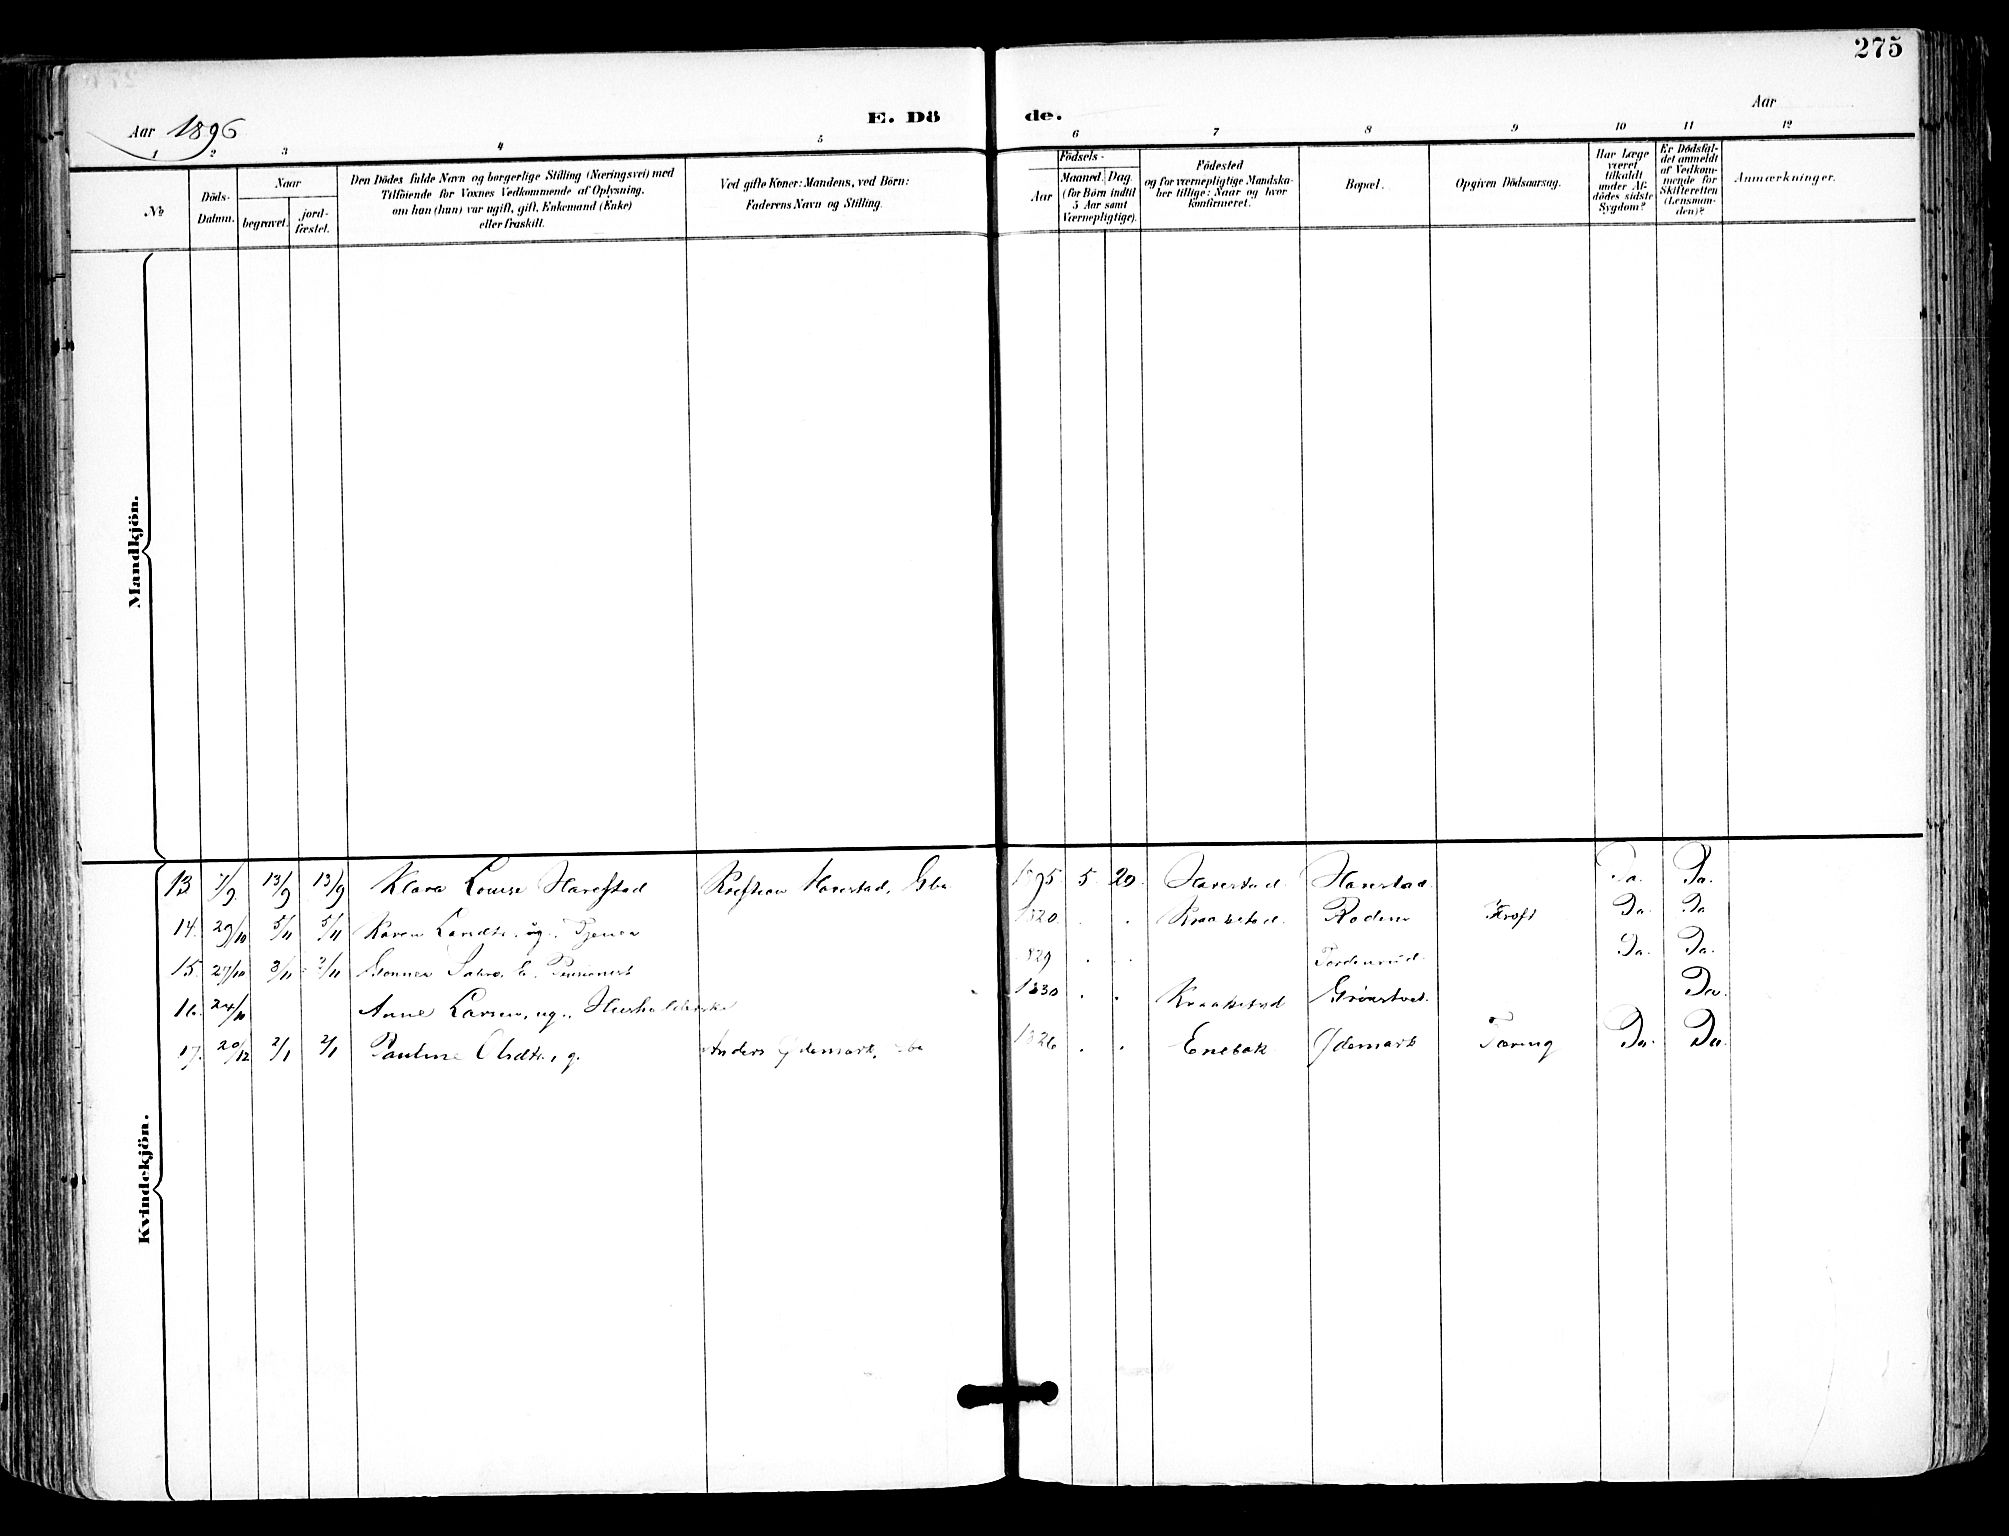 275
Aar 1896
E. Dö
de.
Aar
1 2 3 4 5 6 7 8 9 10 11 12
№
Döds-Datum.
Naar
begravet.
jord-fæstet.
Den Dödes fulde Navn og borgerlige Stilling (Næringsvei) med
Tilföiende for Voxnes Vedkommende af Oplysning,
om han (hun) var ugift, gift, Enkemand (Enke)
eller fraskilt.
Ved gifte Koner: Mandens, ved Börn:
Faderens Navn og Stilling.
Födsels-
Aar
Maaned. Dag.
(for Börn indtil
5 Aar samt
Værnepligtige).
Födested
og for værnepligtige Mandska-
ber tillige: Naar og hvor
konfirmeret.
Bopæl.
Opgiven Dödsaarsag.
Har Læge
været
tilkaldt
under Af-
dödes sidste
Sygdom?
Er Dödsfal-
det anmeldt
af Vedkom-
mende for
Skifteretten
(Lensman-
den)?
Anmærkninger.
Mandkjön.
Kvindekjön.
13 7/9 13/9 13/9 Klara Louise Harestad Harestad, Gbr 1895 5 20 Harestad Harestad Ja. Ja.
14. 29/10 5/11 5/11 Karen ug. Tjener 1820 . . Kraakstad Roden Kræft Ja. Ja
15. 27/10 3/11 3/11 E. 829 . . Tordenrud Ja. Ja.
16. 24/10 Anne Larsen, ug., Husholderske 1830 . . Kraakstad Grönstvet Ja.
17. 20/12 2/1 2/1 Pauline Olsdtr, g. Anders Ødemark, 1826 . . Enebak Ødemark Tæring Ja. Ja.